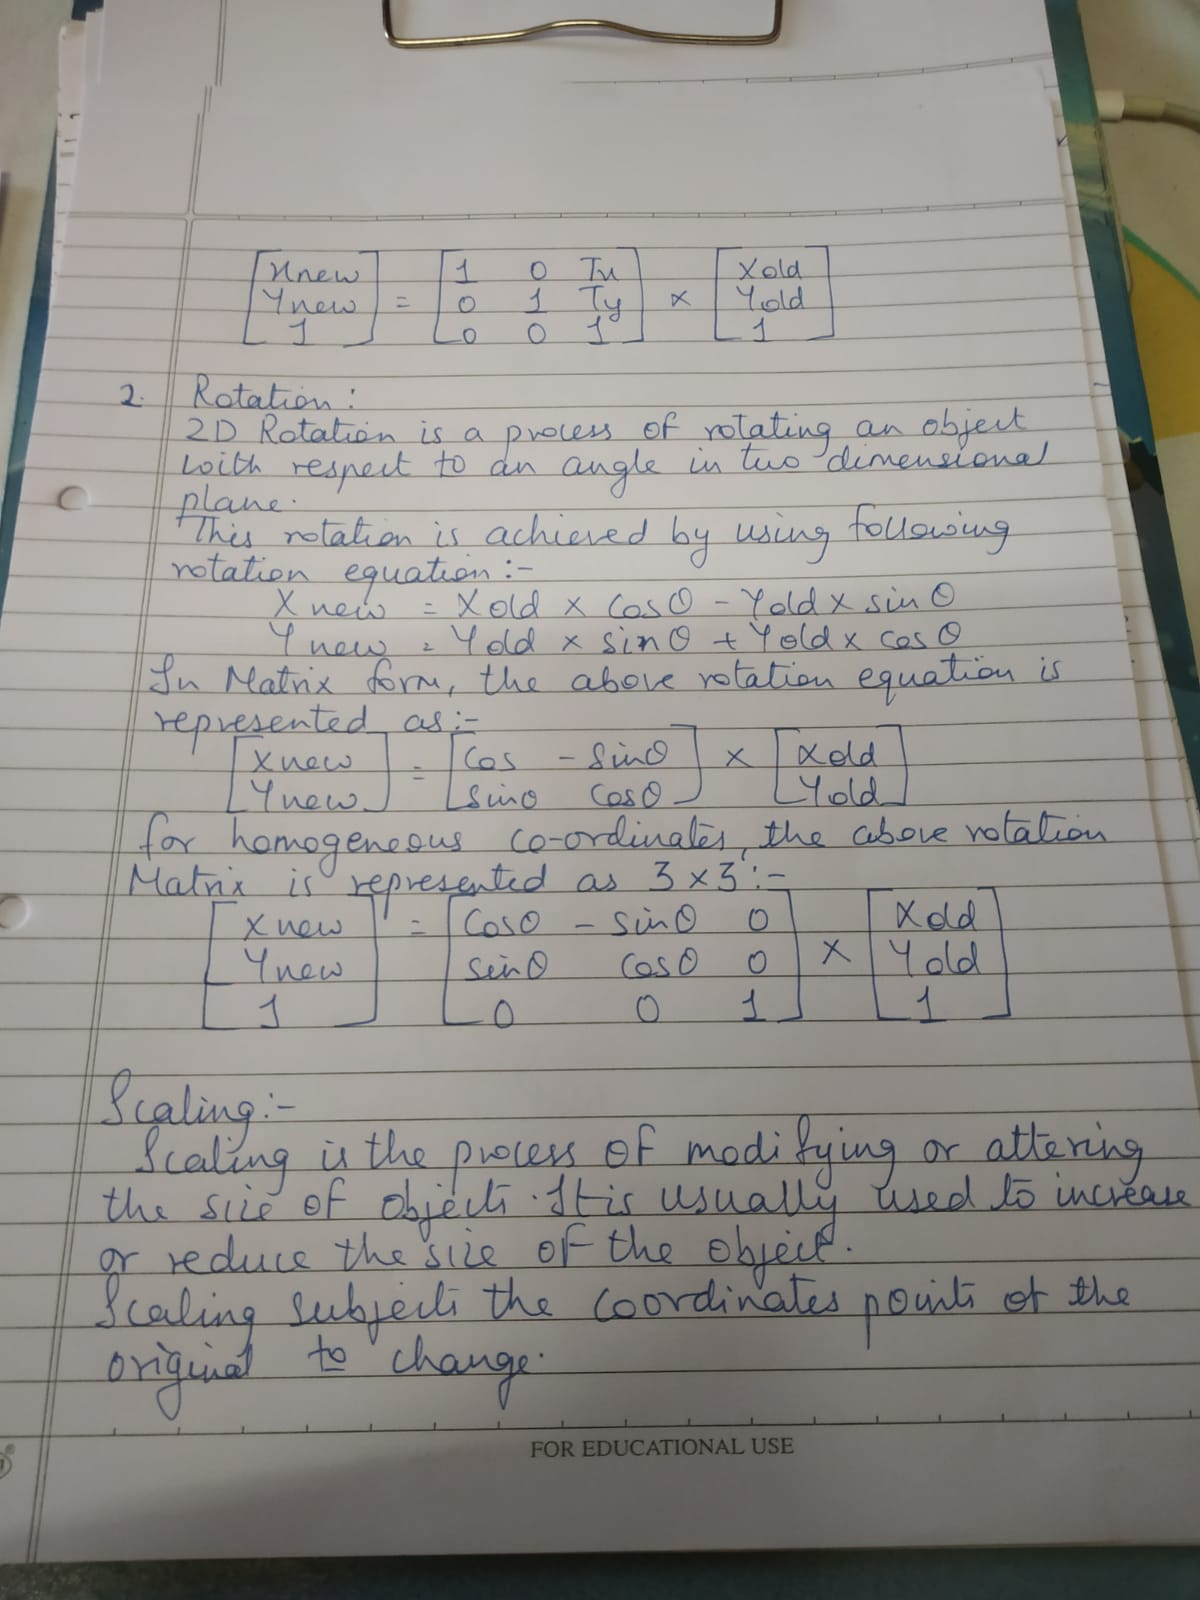 [Xnew] = [1 0 Tx] × [Xold]
[Ynew] [0 1 Ty] [Yold]
[1] [0 0 1] [1]
2. Rotation :
2D Rotation is a process of rotating an object
with respect to an angle in two dimensional
plane.
This rotation is achieved by using following
rotation equation :-
X new = X old × cos θ - Y old × sin θ
Y new = Y old × sin θ + Y old × cos θ
In Matrix form, the above rotation equation is
represented as :-
[X new] = [Cos - Sinθ] × [Xold]
[Ynew] [Sinθ Cosθ] [Yold]
for homogeneous co-ordinates, the above rotation
Matrix is represented as 3 × 3 :-
[X new] = [Cosθ - sinθ 0] × [Xold]
[Ynew] [sinθ cosθ 0] [Yold]
[1] [0 0 1] [1]
Scaling :-
Scaling is the process of modifying or attering
the size of objects. It is usually used to increase
or reduce the size of the object.
Scaling subjects the coordinates points of the
original to change.
FOR EDUCATIONAL USE